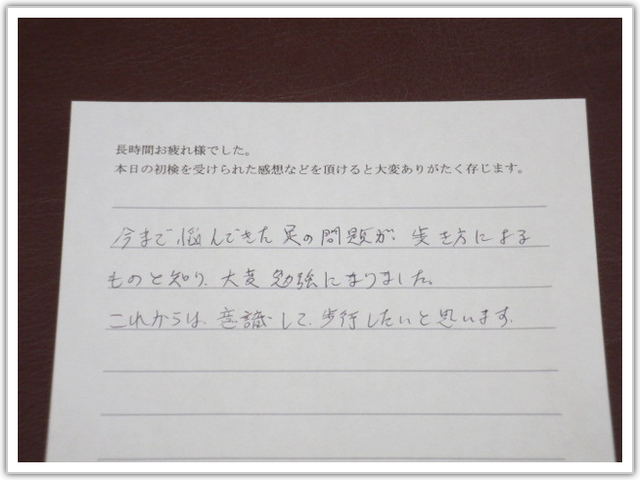 長時間お疲れ様でした。
本日の初検を受けられた感想などを頂けると大変ありがたく存じます。
今まで悩んできた足の問題が、歩き方による
ものと知り、大変勉強になりました。
これからは、意識して、歩行したいと思います。